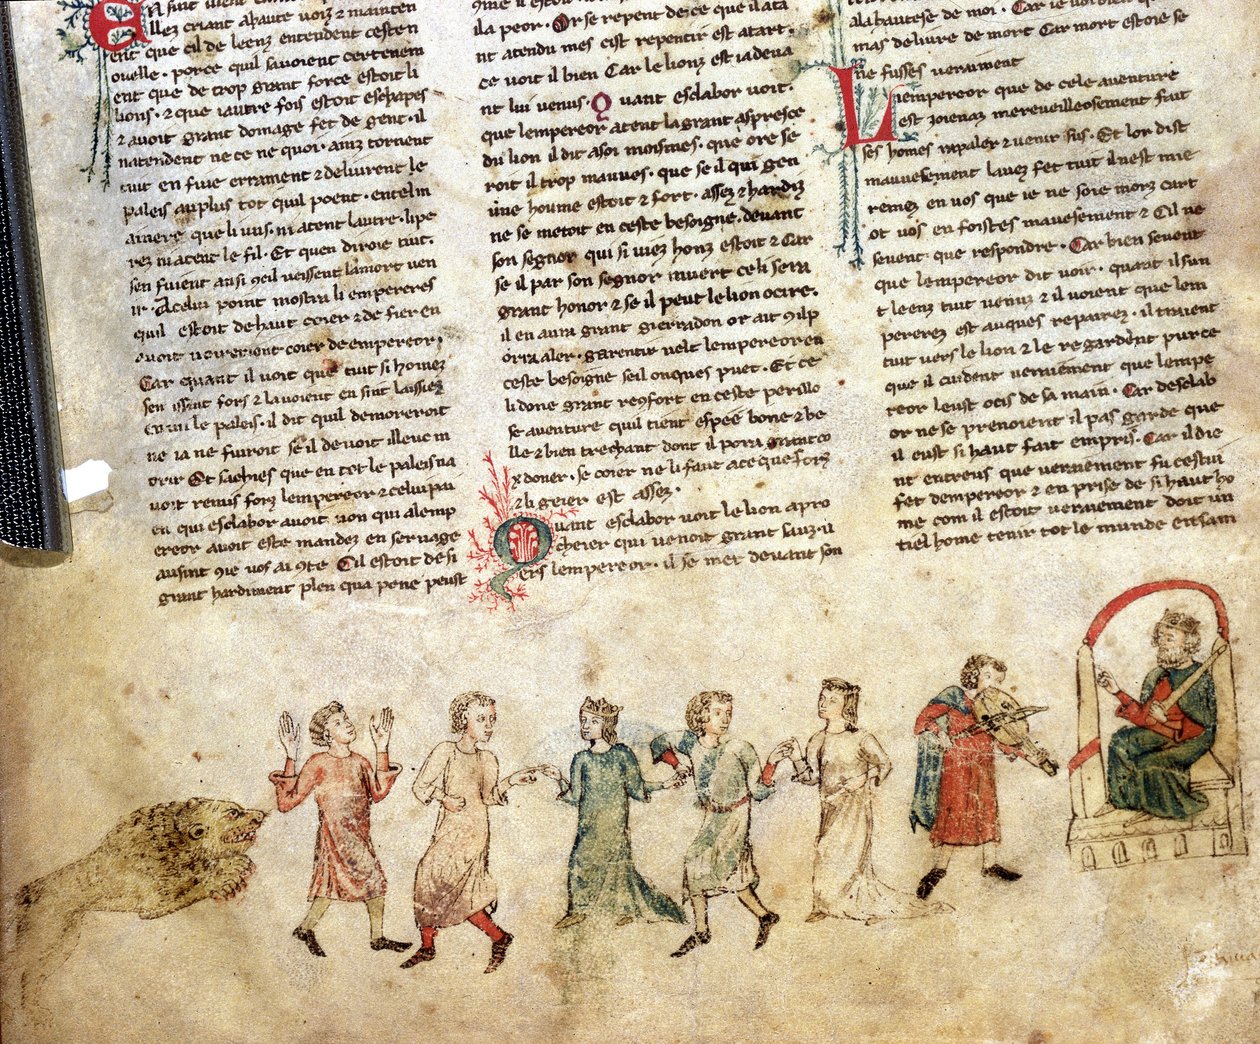 llez criant a haute voiz & mainten
ent que cil de leenz entendent cesten
ouelle. porce quil sauoient certenem
ent que de trop grant force estoit li
lions. & que iautre fois estoit eschapes
& auoit grant domage fet de gent. il
natendent ne ce ne quoi. ainz tornent
tuit en fuie errament & deliurent le
paleis au plus tot quil poent. entel m
ainere que li uns ni atent lautre. li pe
rez ni atent le fil. Et quen diroie tuit.
sen fuient ausi 9eil veissent la mort ven
ir. A celui point mostra li empereres
quil estoit de haut coier & de fier en
uoit uerement coier de empereor.
Car quant il voit que tuit si homez
sen issent fors & lauoient en sint laissiez
en mi le paleis. il dit quil demoreroit
ne ia ne fuiroit se il deuoit illeuc m
orir Et sachiez que en tot le paleis na
uoit remis forz lempereor & celui pa
en qui esclabor auoit non qui alemp
ereor auoit este mandez en seruage
ausint 9e vos ai 9te. Cil estoit de si
grant hardiment plen qua pene peust
il a peor. Or se repent de ce que il ata
nt atendu mes cist repentir est a tart.
ce voit il bien Car le lionz est ia deua
nt lui venus. Quant esclabor voit.
que lempereor atent la grant aspresce
du lion il dit a soi moismes. que ore se
roit il trop mauues. que se il qui gen
une houme estoit & fort. assez & hardiz
ne se metoit en ceste besoigne. deuant
son segnor qui si viez honz estoit & Car
se il par son segnor muert ce li sera
grant honor & se il peut le lion ocire.
il en aura grant gierradon or ait 9il p
orra aler. garentir velt lempereor en
ceste besoigne seil onques puet. Et ce
li done grant re9fort en ceste perillo
se auenture quil tient espee bone & be
lle & bien trechant dont il pora grant co
x doner. se coier ne li faut ace que forz
& li geier est assez.
Quant esclabor voit le lion apro
cheier qui venoit grant sauz. il
ers lempereor. il se met deuant son
a la hautese de moi. Car ie
mas deliure de mort Car mort estoie se
ne fusses veraiment
Lempereor que de cele auenture
est ioienz merueilleosement fait
ses homes rapaler & venir sus. Et lor dist
mauuesement lauez fet tuit il nest mie
remez en vos que ie ne soie morz cart
ot vos en foistes mauesement & Cil ne
seuent que respondre. Car bien seuent
que lempereor dit voir. quant il sun
t leenz tuit venuz & il voient que lem
pererez est auques reparez. il traient
tuit vers le lion & le regardent purce
que il cuident uernement que lempe
reor leust ocis de sa main. Car desclab
or ne se prenoient il pas garde que
il eust si haut fait empris. Car il die
nt entreus que vernement fu cestui
fet dempereor & en prise de si haut ho
me com il estoit vernement doit un
tiel home tenir tot le munde ensam